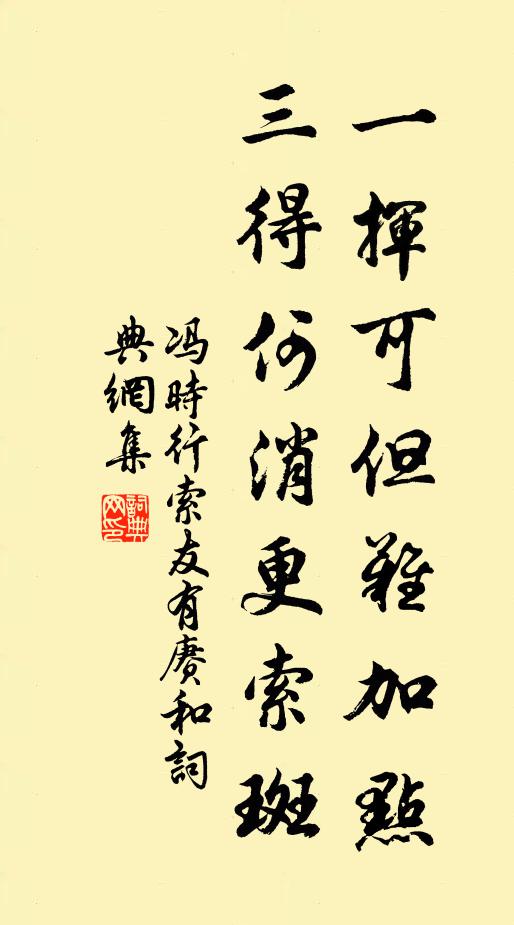 一揮可但難加點
三得何消更索斑
馮時行索友有賡和詞
典網集
詞典網印